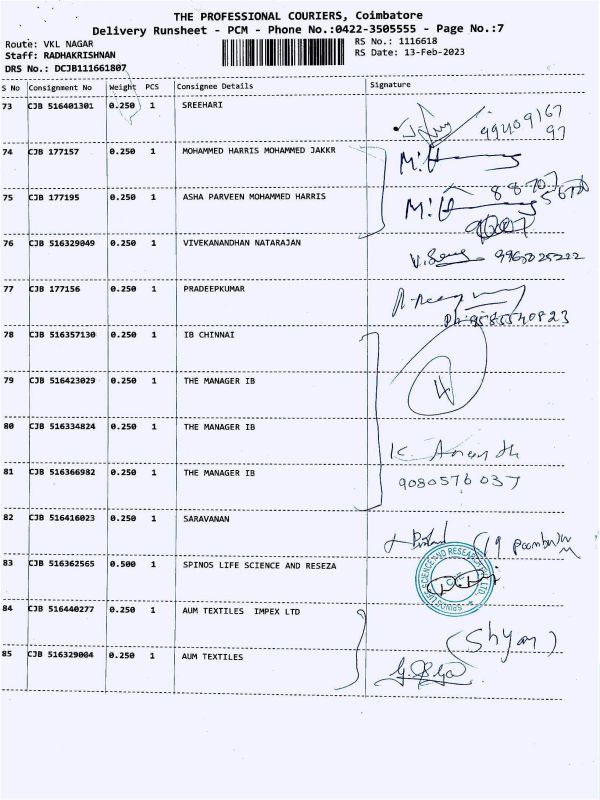 THE PROFESSIONAL COURIERS, Coimbatore
Delivery Runsheet - PCM - Phone No.:0422-3505555 - Page No.:7
Route: VKL NAGAR
RS No.: 1116618
Staff: RADHAKRISHNAN
RS Date: 13-Feb-2023
DRS No.: DCJB111661807
S No Consignment No Weight PCS Consignee Details Signature
73 CJB 516401301 0.250 1 SREEHARI
9940916797
74 CJB 177157 0.250 1 MOHAMMED HARRIS MOHAMMED JAKKR
75 CJB 177195 0.250 1 ASHA PARVEEN MOHAMMED HARRIS
76 CJB 516329049 0.250 1 VIVEKANANDHAN NATARAJAN
9965025222
77 CJB 177156 0.250 1 PRADEEPKUMAR
78 CJB 516357130 0.250 1 IB CHINNAI
79 CJB 516423029 0.250 1 THE MANAGER IB
4
80 CJB 516334824 0.250 1 THE MANAGER IB
K. Anandh
81 CJB 516366982 0.250 1 THE MANAGER IB
9080576037
82 CJB 516416023 0.250 1 SARAVANAN
83 CJB 516362565 0.500 1 SPINOS LIFE SCIENCE AND RESEZA
SPINOS LIFE SCIENCE AND RESEARCH PVT LTD.
84 CJB 516440277 0.250 1 AUM TEXTILES IMPEX LTD
(Shyam)
85 CJB 516329004 0.250 1 AUM TEXTILES